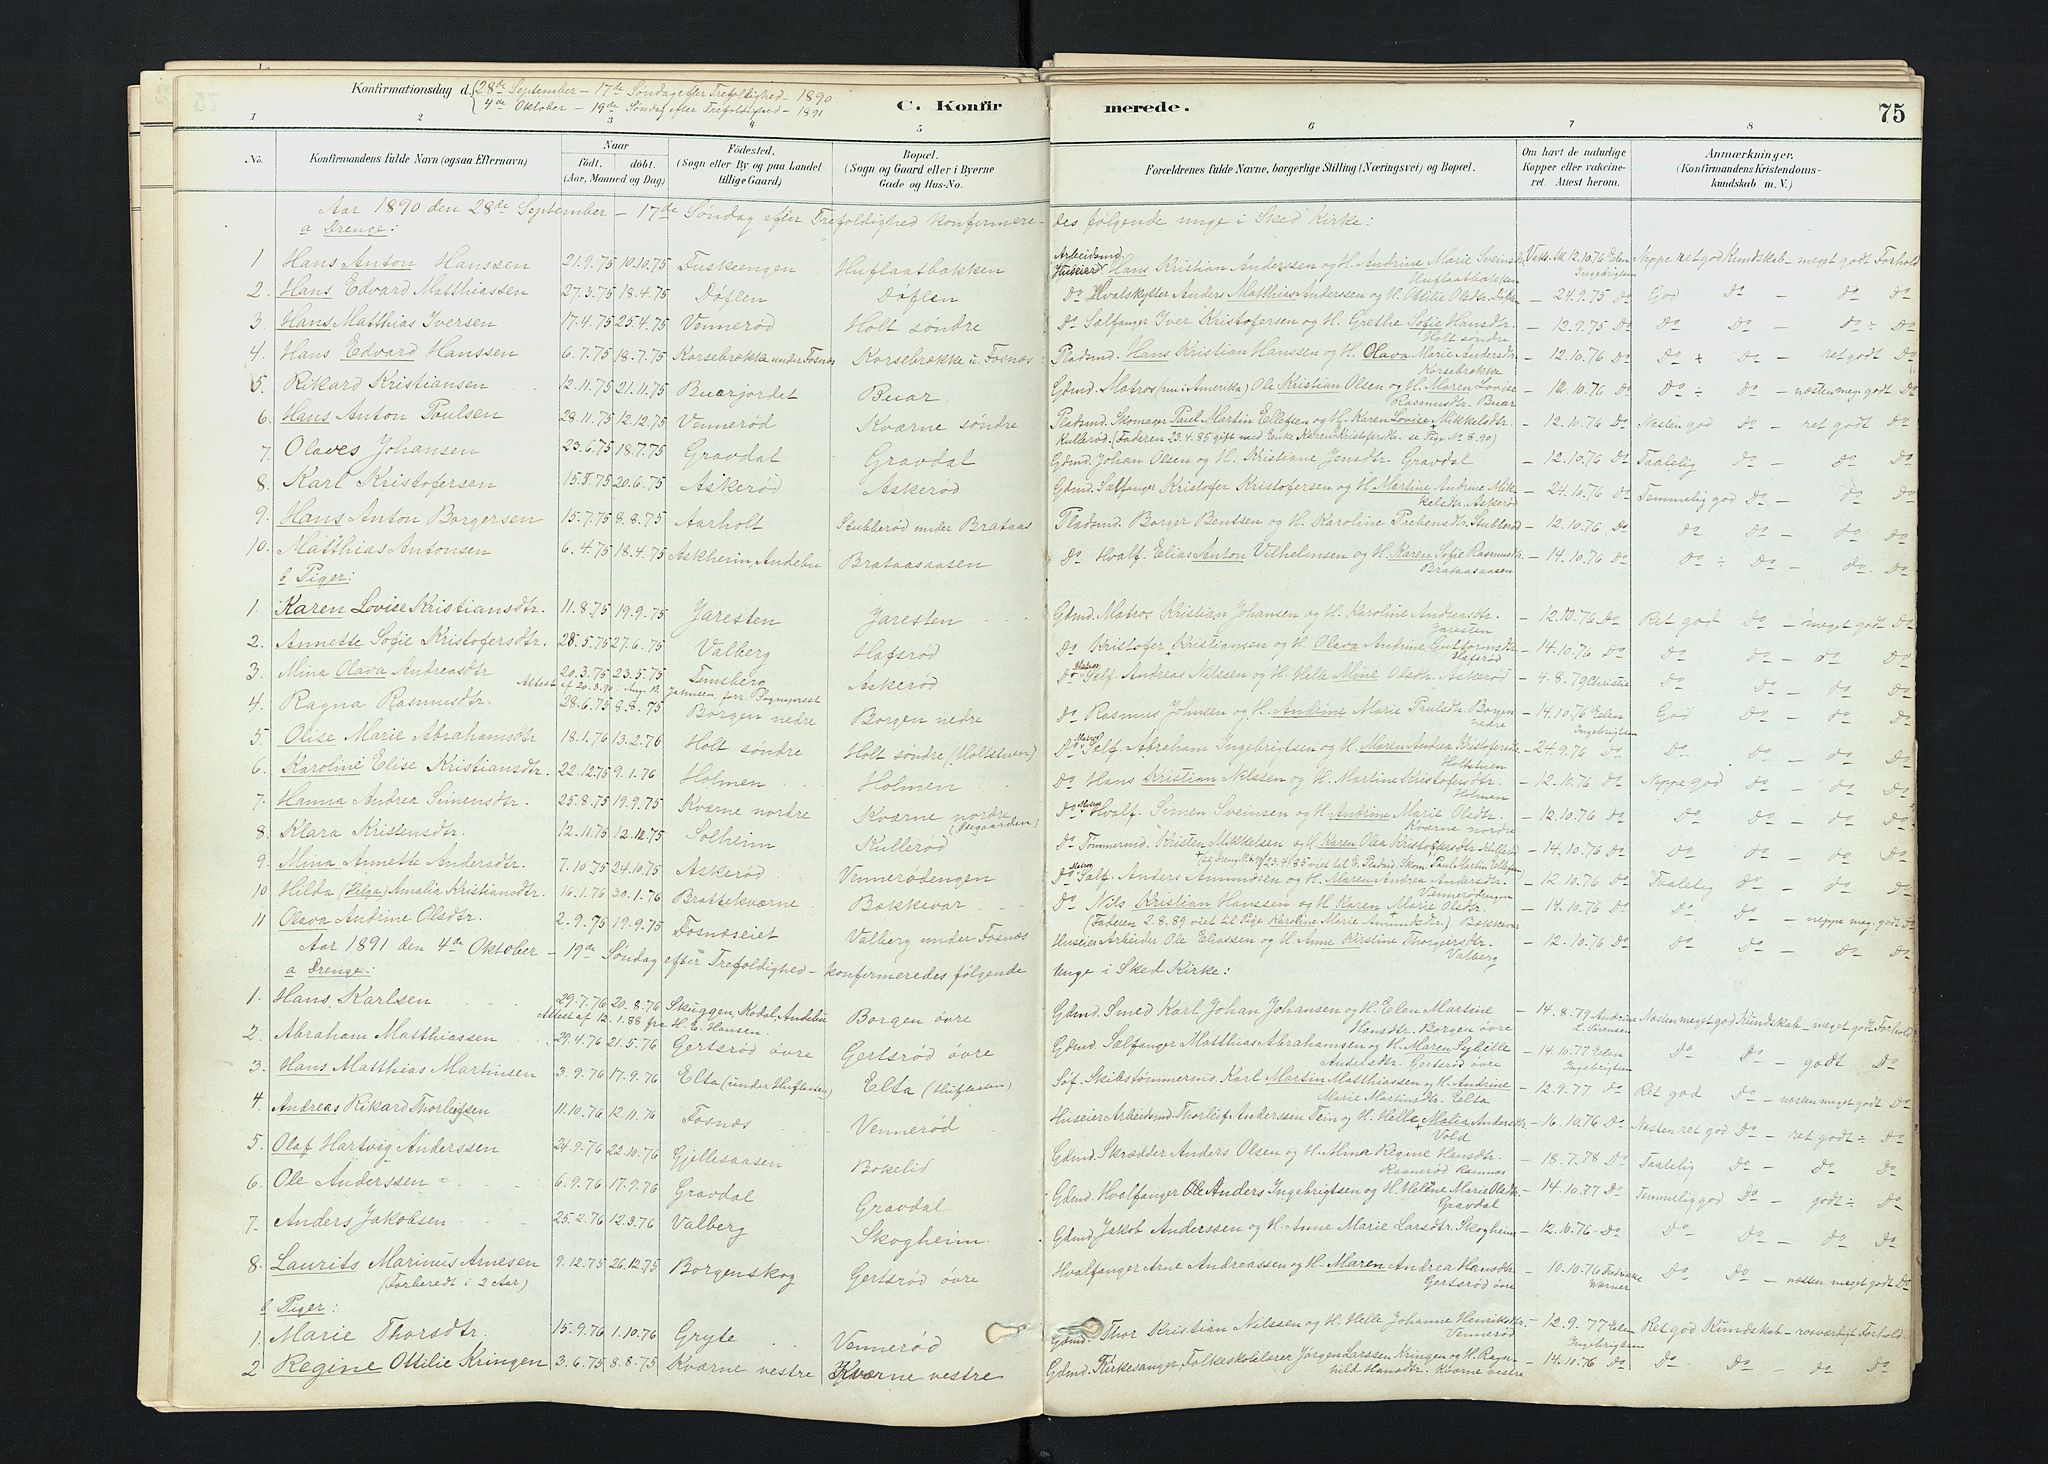 Konfirmationsdag d. 28de September – 17de Søndag efter Trefoldighed – 1890
4de Oktober – 19de Søndag efter Trefoldighed – 1891
C. Konfirmerede.
75
1 2 3 4 5 6 7 8
No. Konfirmandens fulde Navn (ogsaa Efternavn) Naar født. døbt. (Aar, Maaned og Dag) Fødested. (Sogn eller By og paa Landet tillige Gaard) Bopæl. (Sogn og Gaard eller i Byerne Gade og Hus-No. Forældrenes fulde Navne, borgerlige Stilling (Næringsvei) og Bopæl. Om havt de naturlige Kopper eller vakcineret. Attest herom. Anmærkninger. (Konfirmandens Kristendomskundskab m. V.)
Aar 1890 den 28de September – 17de Søndag efter Trefoldighed konfirmeredes følgende unge i Sked Kirke:
a Drenge:
1 Hans Anton Hanssen 21.9.75 10.10.75 Tuskiengen Huflaatbakken Arbeidsmd. Huseier Hans Kristian Anderssen og H. Andrine Marie Svendsdtr. Huflaatbakken Vakc. At. 12.10.76 Elen Ingebrigtsen Neppe ret god Kundskab – meget godt Forhold
2. Hans Edvard Matthiassen 27.3.75 18.4.75 Døflen Døflen Do Hvalskytter Anders Matthias Anderssen og H. Otilie Olsdtr. Døflen – 24.9.75 Do God Do – Do Do
3. Hans Matthias Iversen 17.4.75 25.4.75 Vennerød Holt søndre Do Sælfanger Iver Kristofersen og H. Grethe Sofie Hansdtr. Holt søndre – 12.9.75 Do Do Do – Do ÷ Do
4. Hans Edvard Hanssen 6.7.75 18.7.75 Korsebrække under Fosnæs Korsebrække u. Fosnæs Pladsmd. Hans Kristian Hanssen og H. Olava Marie Andersdtr. Korsebrække – 12.10.76 Do Do ÷ Do – ret godt Do
5. Rikard Kristiansen 12.11.75 21.11.75 Buarjordet Buar Gdmd. Matros (nu i Amerika) Ole Kristian Olsen og H. Maren Lovise Rasmusdtr. Buar – 12.10.76 Do Do ÷ Do – næsten meg. godt Do
6. Hans Anton Poulsen 28.11.75 12.12.75 Vennerød Kværne søndre Pladsmd. Skomager Paul Martin Ellefsen og H. Karen Lovise Mikkelsdtr. Kullerød. (Faderen 23.4.85 gift med Enke Karen Kristofersdtr. se Pige No 8.90) – 12.10.76 Do Næsten god Do – ret godt Do
7. Olaves Johansen 23.6.75 18.7.75 Gravdal Gravdal Gdmd. Johan Olsen og H. Kristiane Jensdtr. Gravdal – 12.10.76 Do Taalelig Do – Do Do
8. Karl Kristofersen 15.5.75 20.6.75 Askerød Askerød Gdmd. Sælfanger Kristofer Kristofersen og H. Martine Andrine Mikkelsdtr. Askerød – 24.10.76 Do Temmelig god Do – Do Do
9. Hans Anton Borgersen 15.7.75 8.8.75 Aarholt Stubberød under Brataas Pladsmd. Borger Bentsen og H. Karoline Prebensdtr. Stubberød – 12.10.76 Do Do Do – Do Do
10. Matthias Antonsen 6.4.75 18.4.75 Askheim, Andebu Brataasaasen Do Hvalf. Elias Anton Vilhelmsen og H. Karen Sofie Rasmusdtr. Brataasaasen – 14.10.76 Do Do ÷ Do – Do. Do
b Piger:
1. Karen Lovise Kristiansdtr. 11.8.75 19.9.75 Jaresten Jaresten Gdmd. Matros Kristian Johansen og H. Karoline Andreasdtr. Jaresten – 12.10.76 Do Ret god Do – meget godt Do
2. Annette Sofie Kristofersdtr. 28.5.75 27.6.75 Valberg Hafsrød Do Kristofer Kristiansen og H. Olava Andrine Guttormsdtr. Hafsrød – 14.10.76 Do Do Do – Do Do
3. Mina Olava Andreasdtr 20.3.75 23.5.75 Tunsberg Attest af 20.3.90 Askerød Do Matros Self. Andreas Nilssen og H. Helle Mine Olsdtr. Askerød – 4.8.79 Christie Do Do – Do Do
4. Ragna Rasmusdtr. 28.6.75 8.8.75 Borgen nedre Borgen nedre Do Rasmus Johnsen og H. Andrine Marie Paulsdtr. Borgen nedre – 14.10.76 Elen Ingebrigtsen God Do – Do Do
5. Olise Marie Abrahamsdtr 18.1.76 13.2.76 Holt søndre Holt søndre (Holtstuen) Do Matros Self. Abraham Ingebrigtsen og H. Maren Andrea Kristofersdtr. Holtstuen – 24.9.76 Do Do Do – Do Do
6. Karoline Elise Kristiansdtr. 22.12.75 9.1.76 Holmen Holmen Do Hans Kristian Nilssen og H. Martine Kristofersdtr. Holmen – 12.10.76 Do Neppe god Do – Do Do
7. Hanna Andrea Simensdtr. 25.8.75 19.9.75 Kværne nordre Kværne nordre Do Matros Hvalf. Simen Sveinsen og H. Andrine Marie Olsdtr. Kværne nordre – 12.10.76 Do Do – Do Do
8. Klara Kristensdtr. 12.11.75 12.12.75 Solheim Kullerød Do Tømmermd. Kristen Mikkelsen og H. Karen Olea Kristofersdtr. Kullerød – 14.10.76 Do Do Do – Do Do
9. Mina Annette Andersdtr. 7.10.75 24.10.75 Askerød Vennerødengen Do Matros Sælf. Anders Ammundsen og H. Maren Andrea Andersdtr. Vennerødengen – 12.10.76 Do Taalelig Do – Do Do
10 Hilda (Helga) Amalia Kristiansdtr. 16.1.76 30.1.76 Brattekværne Bækkevar Do Nils Kristian Hanssen og H. Karen Marie Olsdtr. (Faderen 2.8.89 viet til Pige Karoline Marie Amundsdtr) Bækkevar – 14.10.76 Do Do Do – Do Do
11 Olava Andrine Olsdtr. 2.9.75 19.9.75 Fosnæseiet Valberg under Fosnæs Huseier Arbeider Ole Eliassen og H. Anne Kirstine Thorgersdtr. Valberg – 12.10.76 Do Do Do – neppe meg. godt Do
Aar 1891 den 4de Oktober – 19de Søndag efter Trefoldighed – konfirmeredes følgende unge i Sked Kirke:
a Drenge:
1. Hans Karlsen 29.7.76 20.8.76 Skuggen, Kodal, Andebu Attest af 12.1.88 fra H. E. Hansen. Borgen øvre Gdmd. Smed Karl Johan Johansen og H. Elen Martine Hansdtr. Borgen øvre – 14.8.79 Andrine L. Sørensen Næsten meget god Kundskab – meget godt Forhold
2. Abraham Matthiassen 29.4.76 21.5.76 Gertsrød øvre Gertsrød øvre Gdmd. Sælfanger Matthias Abrahamsen og H. Maren Sybille Andersdtr. Gertsrød øvre – 14.10.77 Elen Ingebrigtsen Do Do – godt Do
3. Hans Matthias Martinsen 3.9.76 17.9.76 Elta (under Huflaaten) Elta (Huflaaten) Søf. Skibstømmermd. Karl Martin Matthiassen og H. Andrine Marie Martinsdtr. Elta – 12.9.77 Do Ret god Do – næsten meget godt Do
4. Andreas Rikard Thorleifsen 11.10.76 12.11.76 Fosnæs Vennerød Huseier Arbeidsmd. Thorleif Anderssen Tein og H. Helle Malia Andersdtr. Vold – 16.10.76 Do Næsten ret god Do – ret godt ÷ Do
5. Olaf Hartvig Anderssen 24.9.76 22.10.76 Gjellesaasen Bøkelid Gdmd. Skrædder Anders Olsen og H. Mina Regine Hansdtr. Raanerød Ramnæs – 18.7.78 Do Taalelig Do – Do Do
6. Ole Anderssen 6.9.76 17.9.76 Gravdal Gravdal Gdmd. Hvalfanger Ole Anders Ingebrigtsen og H. Helene Marie Olsdtr. Gravdal – 14.10.77 Do Temmelig god Do – godt ÷ Do
7. Anders Jakobsen 25.2.76 12.3.76 Valberg Skogheim Gdmd. Jakob Anderssen og H. Anne Marie Larsdtr. Skogheim – 12.10.76 Do Do Do – Do Do
8. Laurits Marinus Arnesen (Forberedt i 2 Aar) 9.12.75 26.12.75 Borgenskog Gertsrød øvre Hvalfanger Arne Andreassen og H. Maren Andrea Hansdtr. Gertsrød øvre – 10.10.76 Fredrikke Werner Do Do – næsten meget godt Do
b Piger:
1. Marie Thorsdtr. 15.9.76 1.10.76 Gryte Vennerød Gdmd. Thor Kristian Nilssen og H. Helle Johanne Henriksdtr. Vennerød – 12.9.77 Elen Ingebrigtsen Ret god Kundskab – rosværdigt Forhold.
2 Regine Ottilie Kringen 3.6.75 8.8.75 Kværne vestre Kværne vestre Gdmd. Kirkesanger, Folkeskolelærer Jørgen Larssen Kringen og H. Ragnhild Hansdtr. Kværne vestre – 14.10.76 Do Do – Do – Do Do